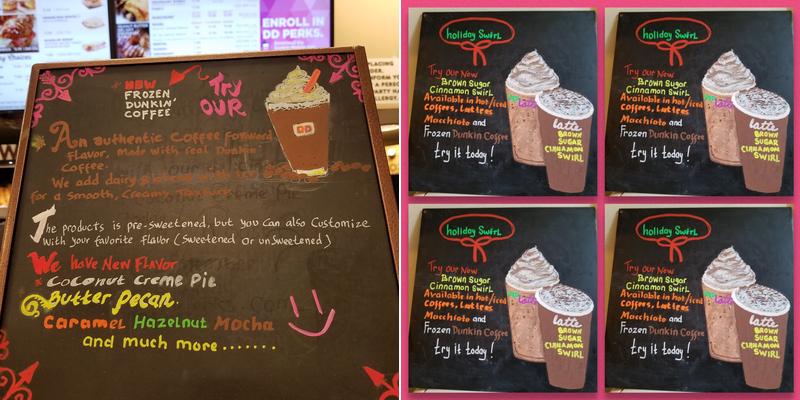 ENROLL IN
DD PERKS.
NEW
FROZEN
DUNKIN'
COFFEE
Try
OUR
DD
An authentic Coffee Forward
Flavor, made with real Dunkin'
Coffee.
We add dairy
for a Smooth, Creamy,
The products is pre-sweetened, but you can also Customize
with your favorite flavor (Sweetened or unsweetened)
We have New Flavor
Coconut Creme Pie
Butter pecan.
Caramel Hazelnut Mocha
and much more .......
holiday Swirl
Try Our New
Brown Sugar
Cinnamon Swirl
Available in hot/iced
Coffees, Lattes
Macchiato and
Frozen Dunkin Coffee
try it today!
latte
BROWN
SUGAR
CINNAMON
SWIRL
holiday Swirl
Try Our New
Brown Sugar
Cinnamon Swirl
Available in hot/iced
Coffees, Lattes
Macchiato and
Frozen Dunkin Coffee
try it today!
latte
BROWN
SUGAR
CINNAMON
SWIRL
holiday Swirl
Try Our New
Brown Sugar
Cinnamon Swirl
Available in hot/iced
Coffees, Lattes
Macchiato and
Frozen Dunkin Coffee
try it today!
latte
BROWN
SUGAR
CINNAMON
SWIRL
holiday Swirl
Try Our New
Brown Sugar
Cinnamon Swirl
Available in hot/iced
Coffees, Lattes
Macchiato and
Frozen Dunkin Coffee
try it today!
latte
BROWN
SUGAR
CINNAMON
SWIRL